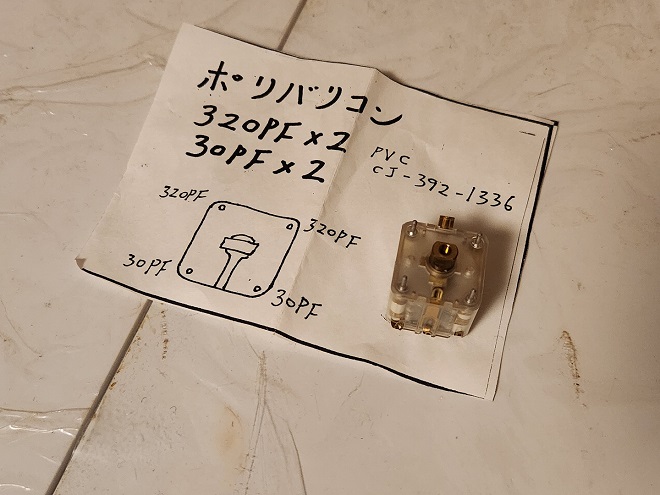 ポリバリコン
320PF×2
30PF×2
PVC
CJ-392-1336
320PF
320PF
30PF
30PF